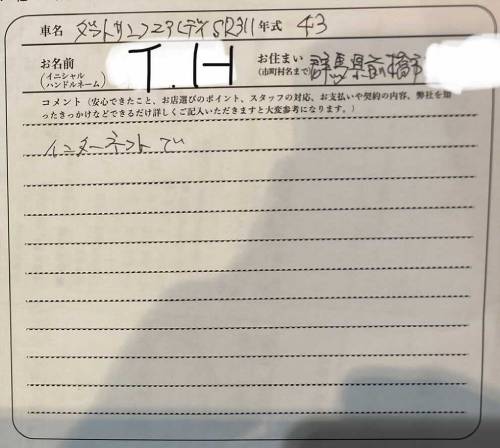 車名 ダットサンフェアレディSR311 年式 43
お名前 (イニシャル ハンドルネーム) T.H お住まい (市町村名まで) 群馬県前橋市
コメント（安心できたこと、お店選びのポイント、スタッフの対応、お支払いや契約の内容、弊社を知
ったきっかけなどできるだけ詳しくご記入いただきますと大変参考になります。）
インターネットで